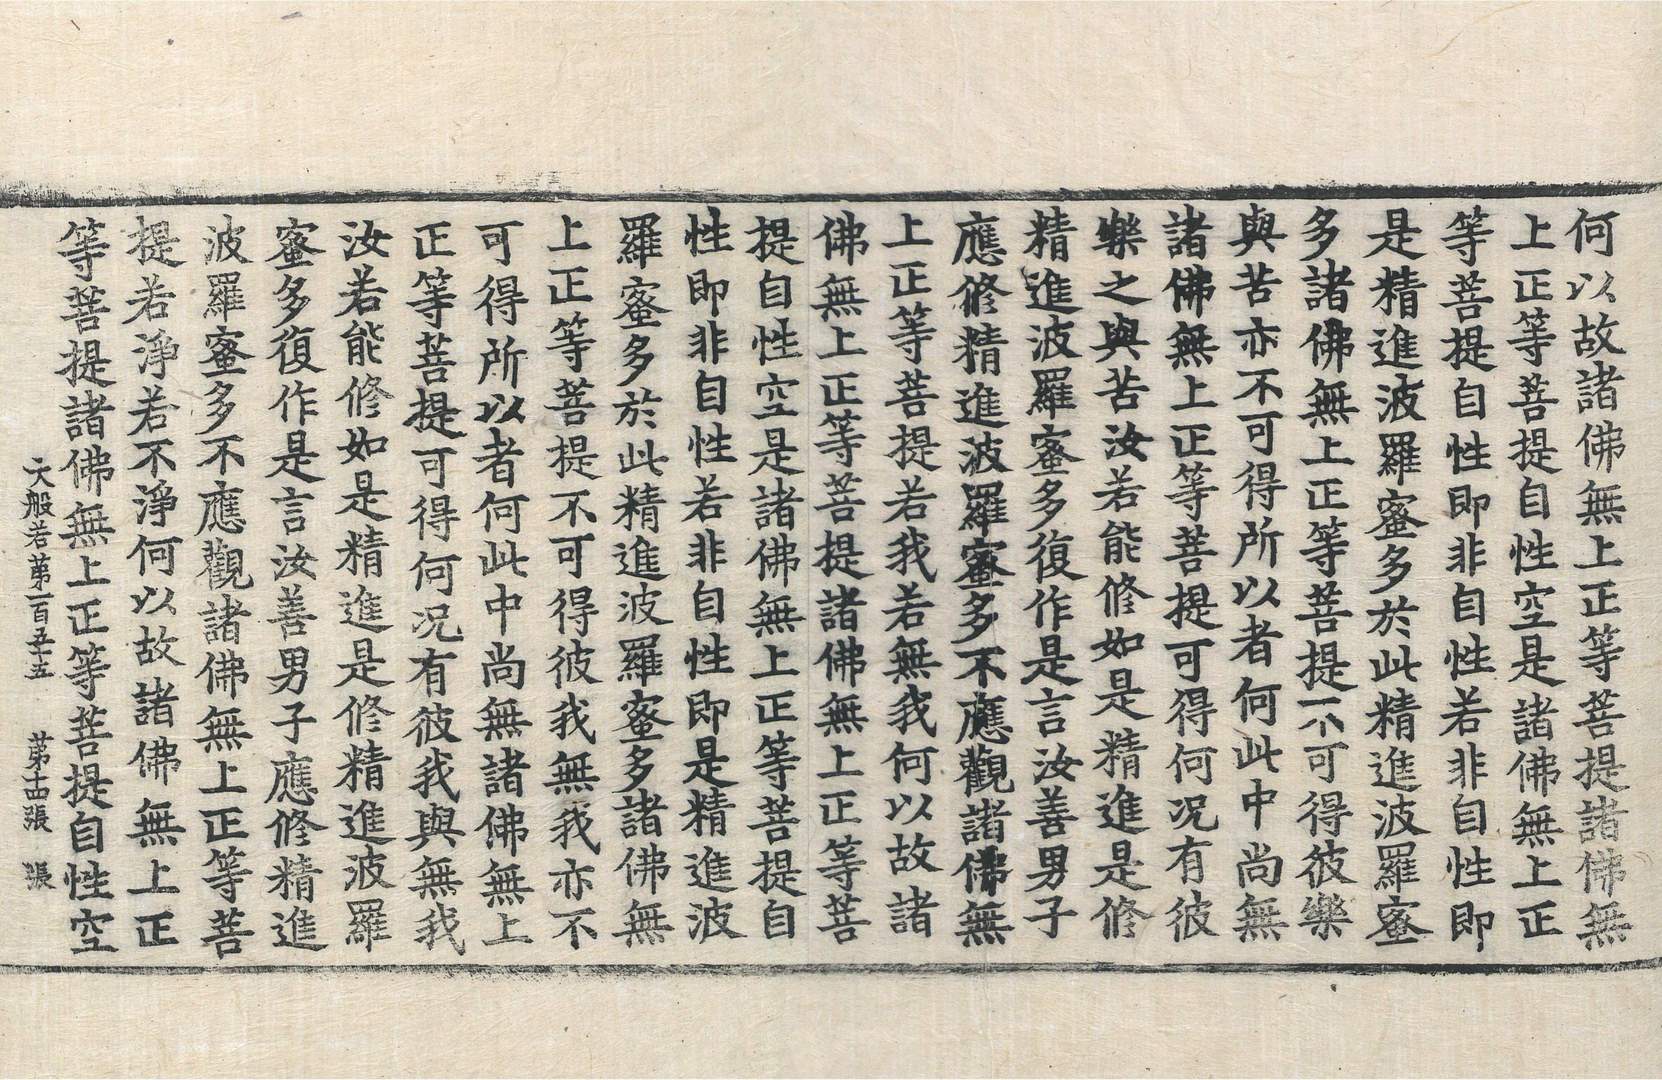 何以故諸佛無上正等菩提諸佛無
上正等菩提自性空是諸佛無上正
等菩提自性即非自性若非自性即
是精進波羅蜜多於此精進波羅蜜
多諸佛無上正等菩提不可得彼樂
與苦亦不可得所以者何此中尚無
諸佛無上正等菩提可得何况有彼
樂之與苦汝若能修如是精進是修
精進波羅蜜多復作是言汝善男子
應修精進波羅蜜多不應觀諸佛無
上正等菩提若我若無我何以故諸
佛無上正等菩提諸佛無上正等菩
提自性空是諸佛無上正等菩提自
性即非自性若非自性即是精進波
羅蜜多於此精進波羅蜜多諸佛無
上正等菩提不可得彼我無我亦不
可得所以者何此中尚無諸佛無上
正等菩提可得何况有彼我與無我
汝若能修如是精進是修精進波羅
蜜多復作是言汝善男子應修精進
波羅蜜多不應觀諸佛無上正等菩
提若淨若不淨何以故諸佛無上正
等菩提諸佛無上正等菩提自性空
大般若第一百五十五 第十四張 張